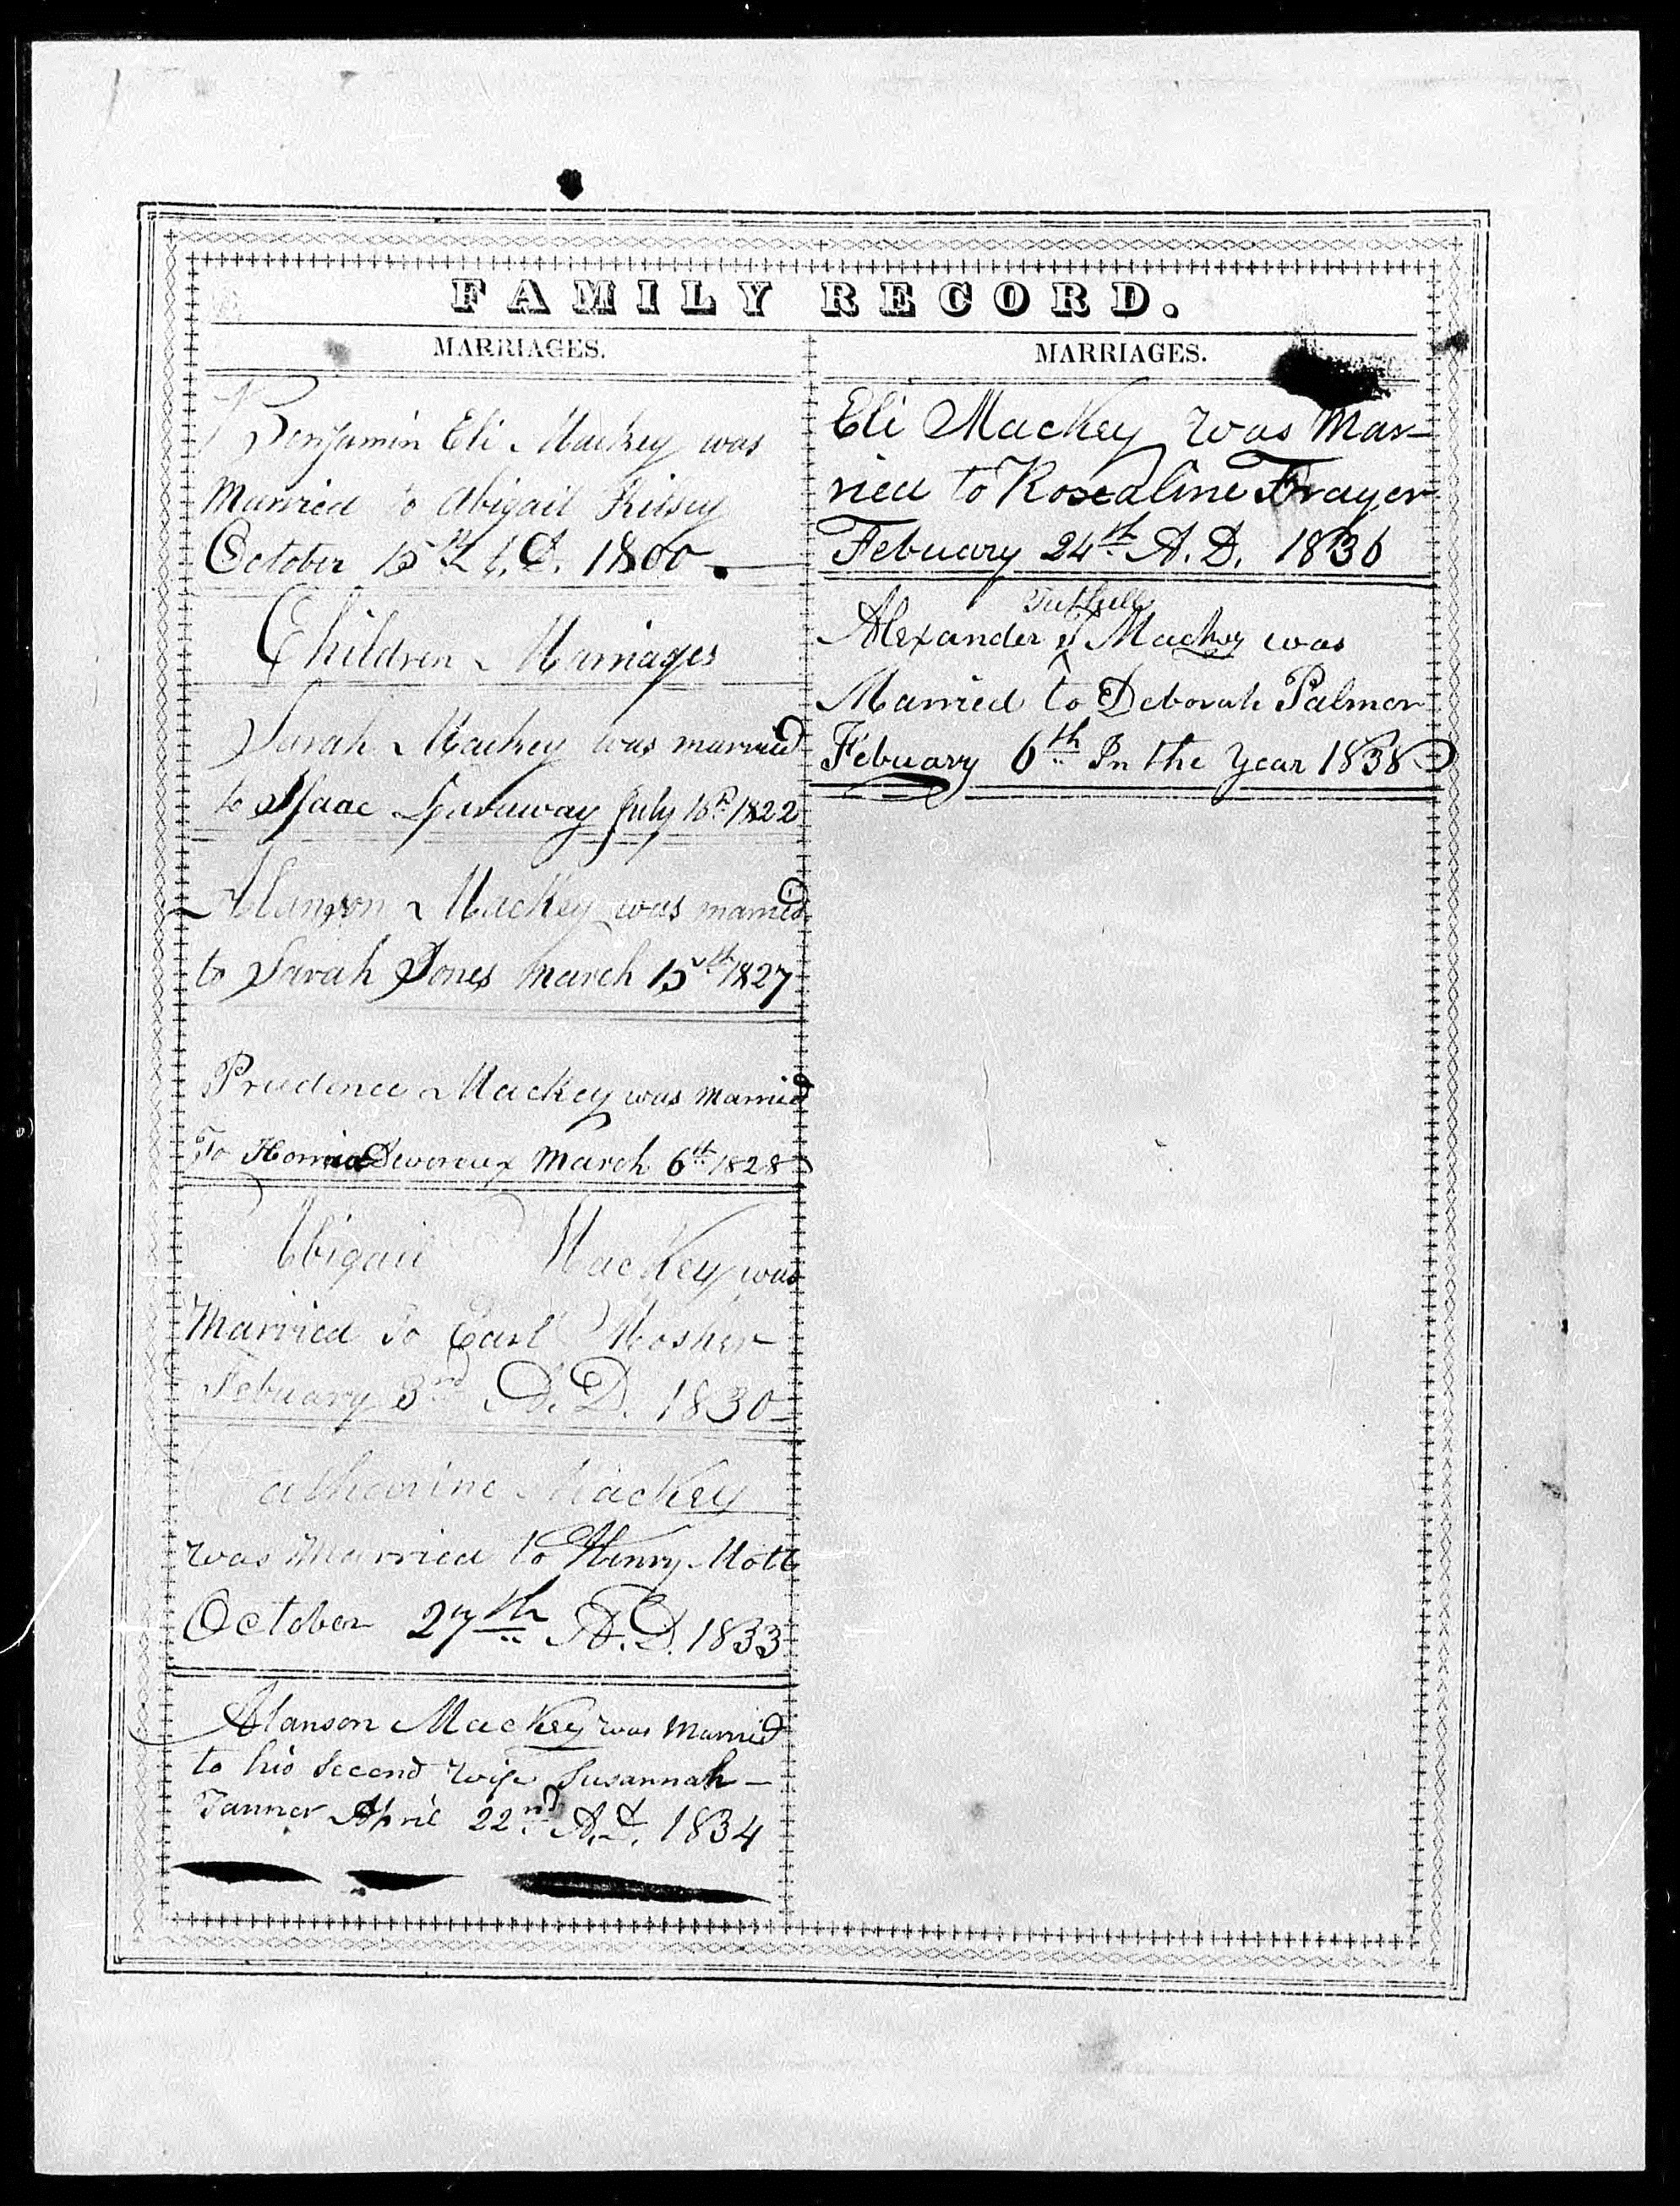 FAMILY RECORD.
MARRIAGES.
Benjamin Eli Mackey was
Married to Abigail
October 15th A.D. 1800
Children Marriages
Sarah Mackey was married
to Isaac July 1822
Alanson Mackey was married
to Sarah Jones March 15th 1827
Prudence Mackey was Married
To Devereux March 6th 1828
Abigail Mackey was
Married To Earl Mosher
Febuary 3rd A.D. 1830
Catharine Mackey
was Married to Henry Mott
October 27th A.D. 1833
Alanson Mackey was Married
to his Second Wife Susannah
Tanner April 22nd A.D. 1834
MARRIAGES.
Eli Mackey Was Mar-
ried to Rosealine Frayer
Febuary 24th A.D. 1836
Tuthill
Alexander T Mackey was
Married to Deborah Palmer
Febuary 6th In the Year 1838